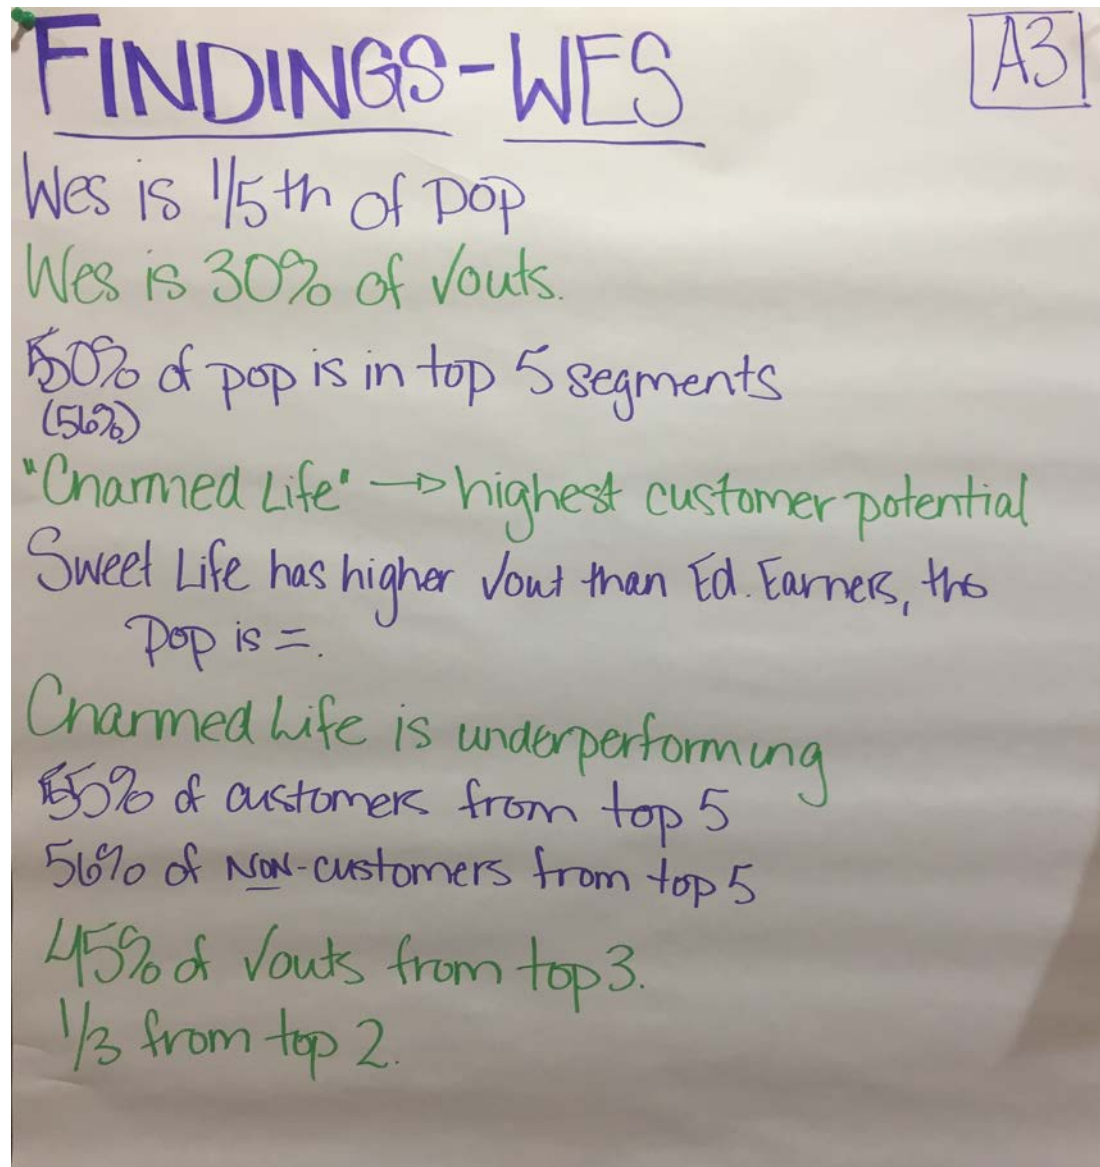 FINDINGS - WES
A3
Wes is 1/5th of pop
Wes is 30% of √outs.
50% of pop is in top 5 segments
(56%)
"Charmed Life" → highest customer potential
Sweet Life has higher √out than Ed. Earners, tho
pop is =.
Charmed Life is underperforming
55% of customers from top 5
56% of NON-customers from top 5
45% of √outs from top 3.
1/3 from top 2.